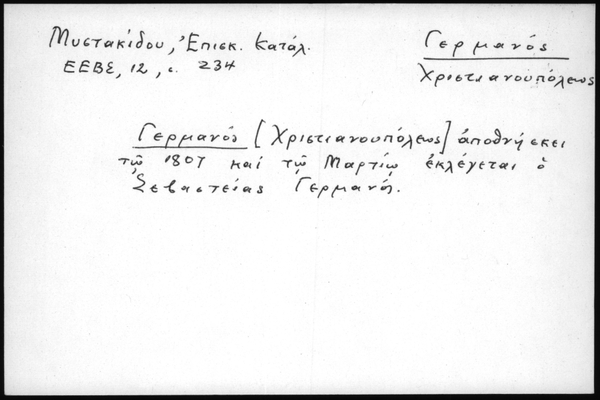 Μυστακίδου, Ἐπισκ. Κατάλ.
ΕΕΒΣ, 12, σ. 234
Γερμανός
Χριστιανουπόλεως
Γερμανός [Χριστιανουπόλεως] ἀποθνήσκει
τῷ 1807 καί τῷ Μαρτίῳ ἐκλέγεται ὁ
Σεβαστείας Γερμανός.